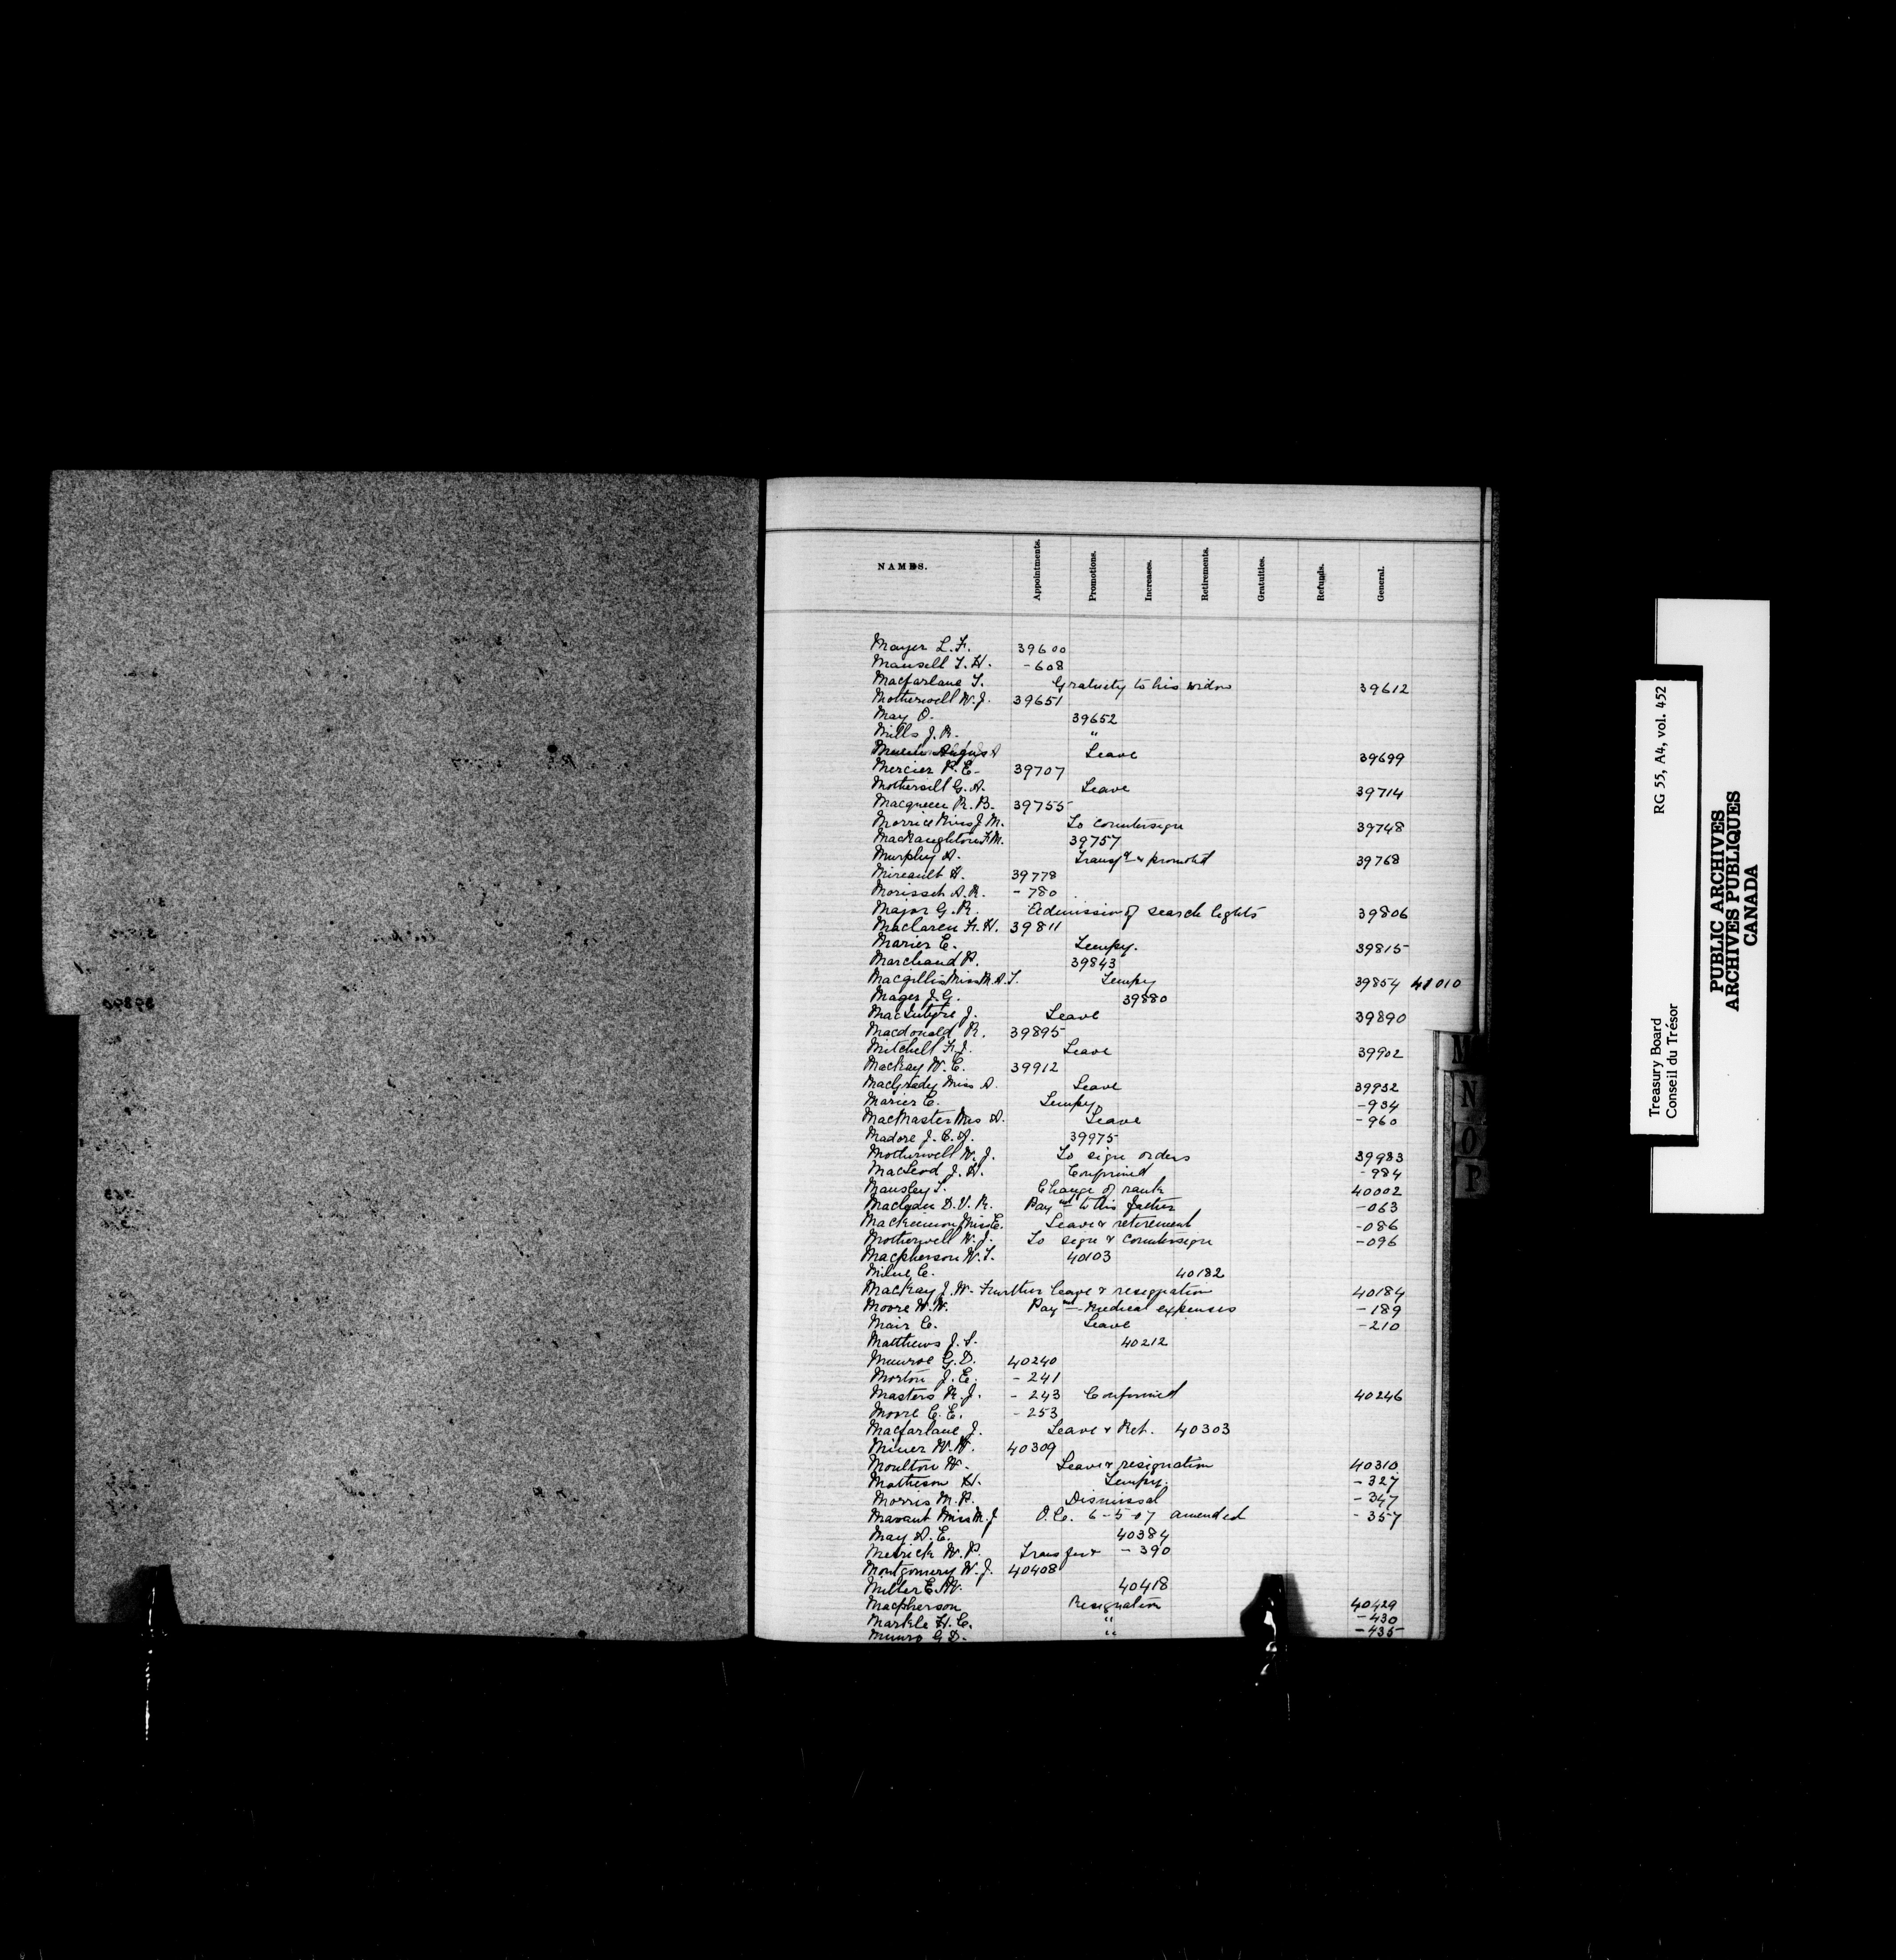 NAMES. Appointments. Promotions. Increases. Retirements. Gratuities. Refunds. General.
Mayer L. F. 39600
Mansell T. H. -608
Macfarlane T. Gratuity to his widow 39612
Motherwell W. J. 39651
May O. 39652
Mills J. R. "
Leave 39699
Mercier P. E. 39707
Mothersill G. A. Leave 39714
Macqueen R. B. 39755
Morrice Miss J. M. To countersign 39748
MacNaughton F. M. 39757
Murphy D. Transfd & promoted 39768
Mireault H. 39778
Morisset A. R. -780
Major G. R. Admission of search lights 39806
Maclaren F. H. 39811
Marier E. Tempy. 39815
Marchand P. 39843
Macgillis Miss M. A. T. Tempy 39854 41010
Mager J. G. 39880
MacIntyre J. Leave 39890
Macdonald R. 39895
Mitchell F. J. Leave 39902
Mackay W. E. 39912
MacGrady Miss A. Leave 39932
Marier E. Tempy -934
MacMaster Mrs A. Leave -960
Madore J. E. A. 39975
Motherwell W. J. To sign orders 39983
MacLeod J. H. Confirmed -984
Mansley T. Change of rank 40002
D. V. R. Paymt to his father -063
MacKinnon Miss E. Leave & retirement -086
Motherwell W. J. To sign & countersign -096
Macpherson W. T. 40103
Milne C. 40182
MacKay J. W. Further leave & resignation 40184
Moore W. W. Paymt medical expenses -189
Mair C. Leave -210
Matthews J. S. 40212
Munroe G. D. 40240
Morton J. E. -241
Masters R. J. -243 Confirmed 40246
Moore C. E. -253
Macfarlane J. Leave & Ret. 40303
Miner W. H. 40309
Moulton W. Leave & resignation 40310
Matheson H. Tempy. -327
Morris M. P. Dismissal -347
Miss M. J O.C. 6-5-07 amended -357
May A. E. 40384
Metrick W. P. Transfer & -390
Montgomery W. J. 40408
Miller E. W. 40418
Macpherson Resignation 40429
Markle H. C. " -430
Munro G. D. " -435
M
N
O
P
Treasury Board RG 55, A4, vol. 452
Conseil du Trésor
PUBLIC ARCHIVES
ARCHIVES PUBLIQUES
CANADA